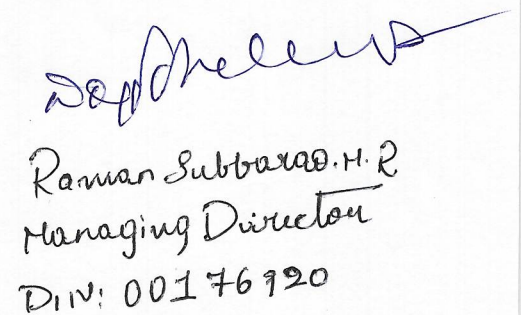 Raman Subbarao.H.R
Managing Director
DIN: 00176920